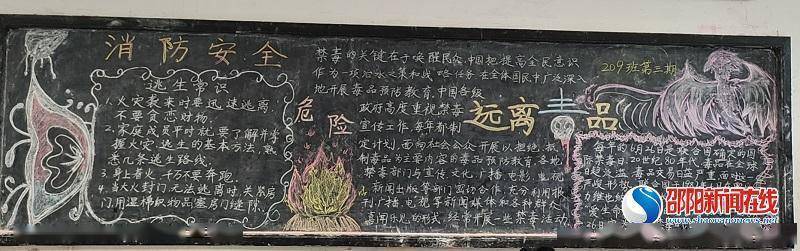 消防安全
逃生常识
1、火灾袭来时要迅速逃离,
不要贪恋财物.
2、家庭成员平时就要了解并掌
握火灾逃生的基本方法,熟
悉几条逃生路线.
3、身上着火,千万不要奔跑.
4、当大火封门无法逃离时,关紧房
门用湿棉织物品塞房门缝隙.
危险
禁毒的关键在于唤醒民众,中国把提高全民意识
作为一项治水之策和战略任务,在全体国民中广泛深入
地开展毒品预防教育,中国各级
政府高度重视禁毒
宣传工作,每年都制
定计划,面向社会公众开展以拒绝、抵
制毒品为主要内容的毒品预防教育,各地
禁毒部门与宣传文化、广播、电影、监视
新闻出版等部门密切合作,充分利用报
广播电视等新闻媒体和各种群人
喜闻乐见的形式,经常开展一些禁毒活动
远离毒品
209班第三期
每年的6月26日是联合国确定的国
际禁毒日,20世纪80年代,毒品在全球
日趋泛滥,毒品交易日益严重面临
26日
邵阳新闻在线
www.shaoyangnews.net